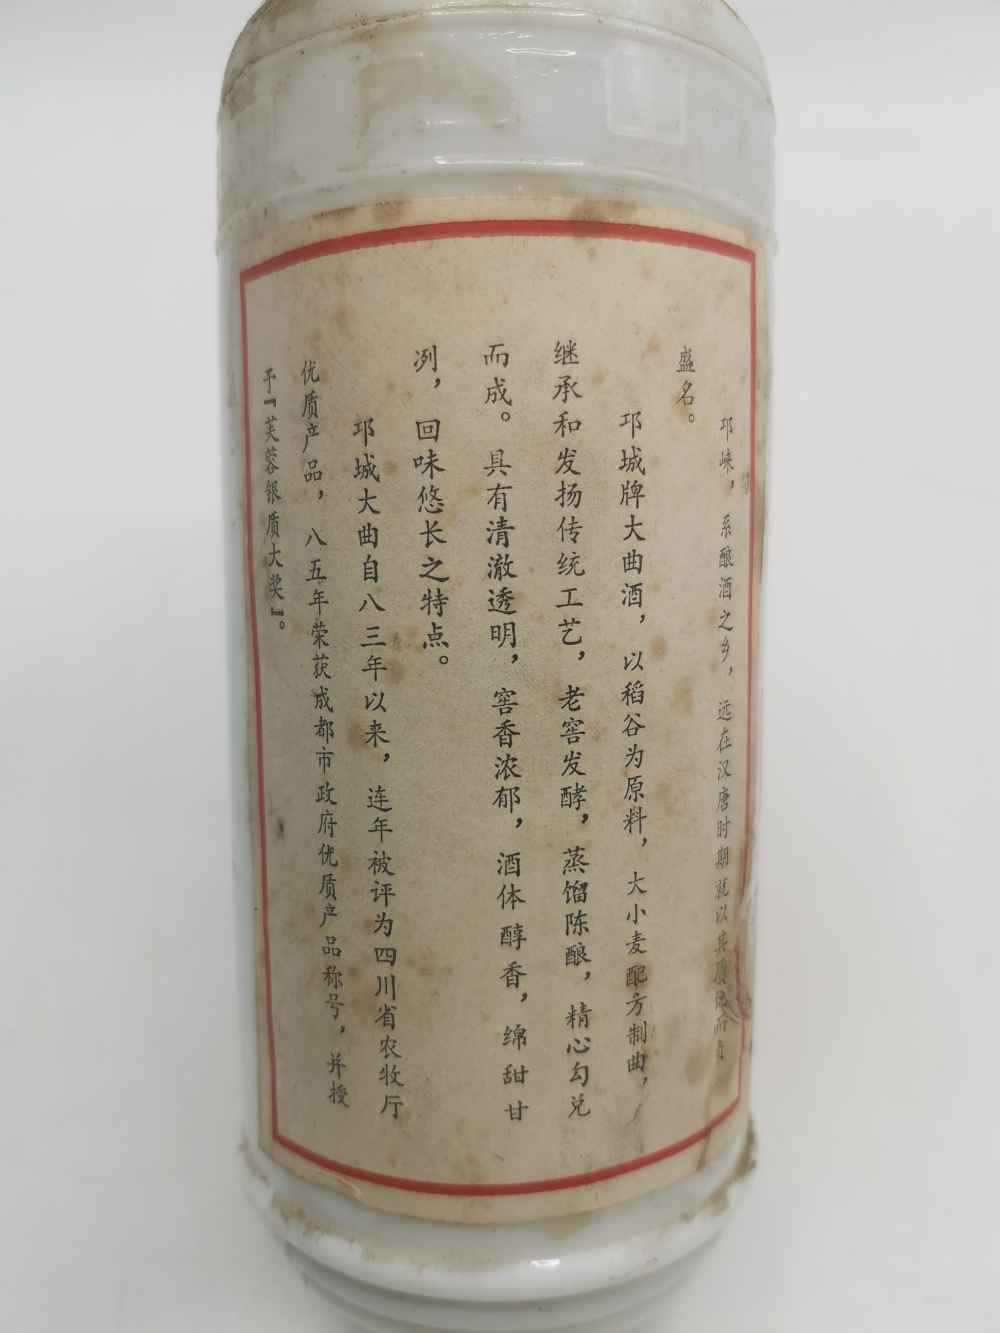 邛崃，系酿酒之乡，远在汉唐时期就以其质优而负
盛名。
邛城牌大曲酒，以稻谷为原料，大小麦配方制曲，
继承和发扬传统工艺，老窖发酵，蒸馏陈酿，精心勾兑
而成。具有清澈透明，窖香浓郁，酒体醇香，绵甜甘
冽，回味悠长之特点。
邛城大曲自八三年以来，连年被评为四川省农牧厅
优质产品，八五年荣获成都市政府优质产品称号，并授
予『芙蓉银质大奖』。